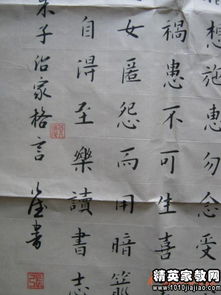 想施惠勿念受
禍患不可生喜
女匿怨而用暗箭
自得至樂讀書志
朱子治家格言 書
精英家教网
www.1010jiajiao.com